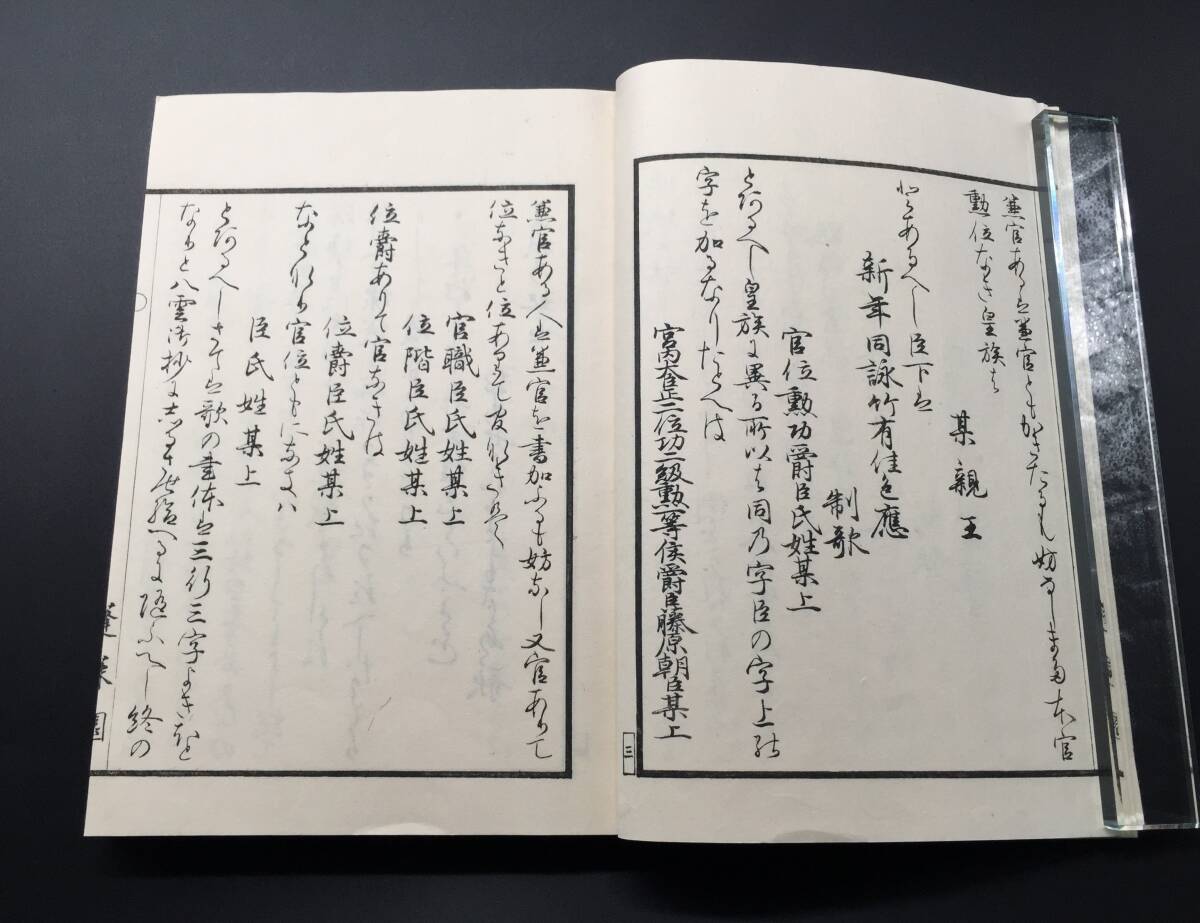 兼官あるは兼官ともかきたるも妨なしまた本官
勲位なき皇族は
某親王
とあるへし臣下は
新年同詠竹有佳色應
制歌
官位勲功爵臣氏姓某上
とかくへし皇族に異る所以は同乃字臣の字上の
字を加るなりたとへは
宮内大臣正二位功二級勲一等侯爵臣藤原朝臣某上
三
兼官ある人は兼官を書加ふるも妨なし又官ありて
位なきと位ありて官なきは
官職臣氏姓某上
位階臣氏姓某上
位爵ありて官なきは
位爵臣氏姓某上
なとかく官位ともになきハ
臣氏姓某上
とかくへしさては歌の書体は三行三字よきほと
なりと八雲御抄に
へし終の